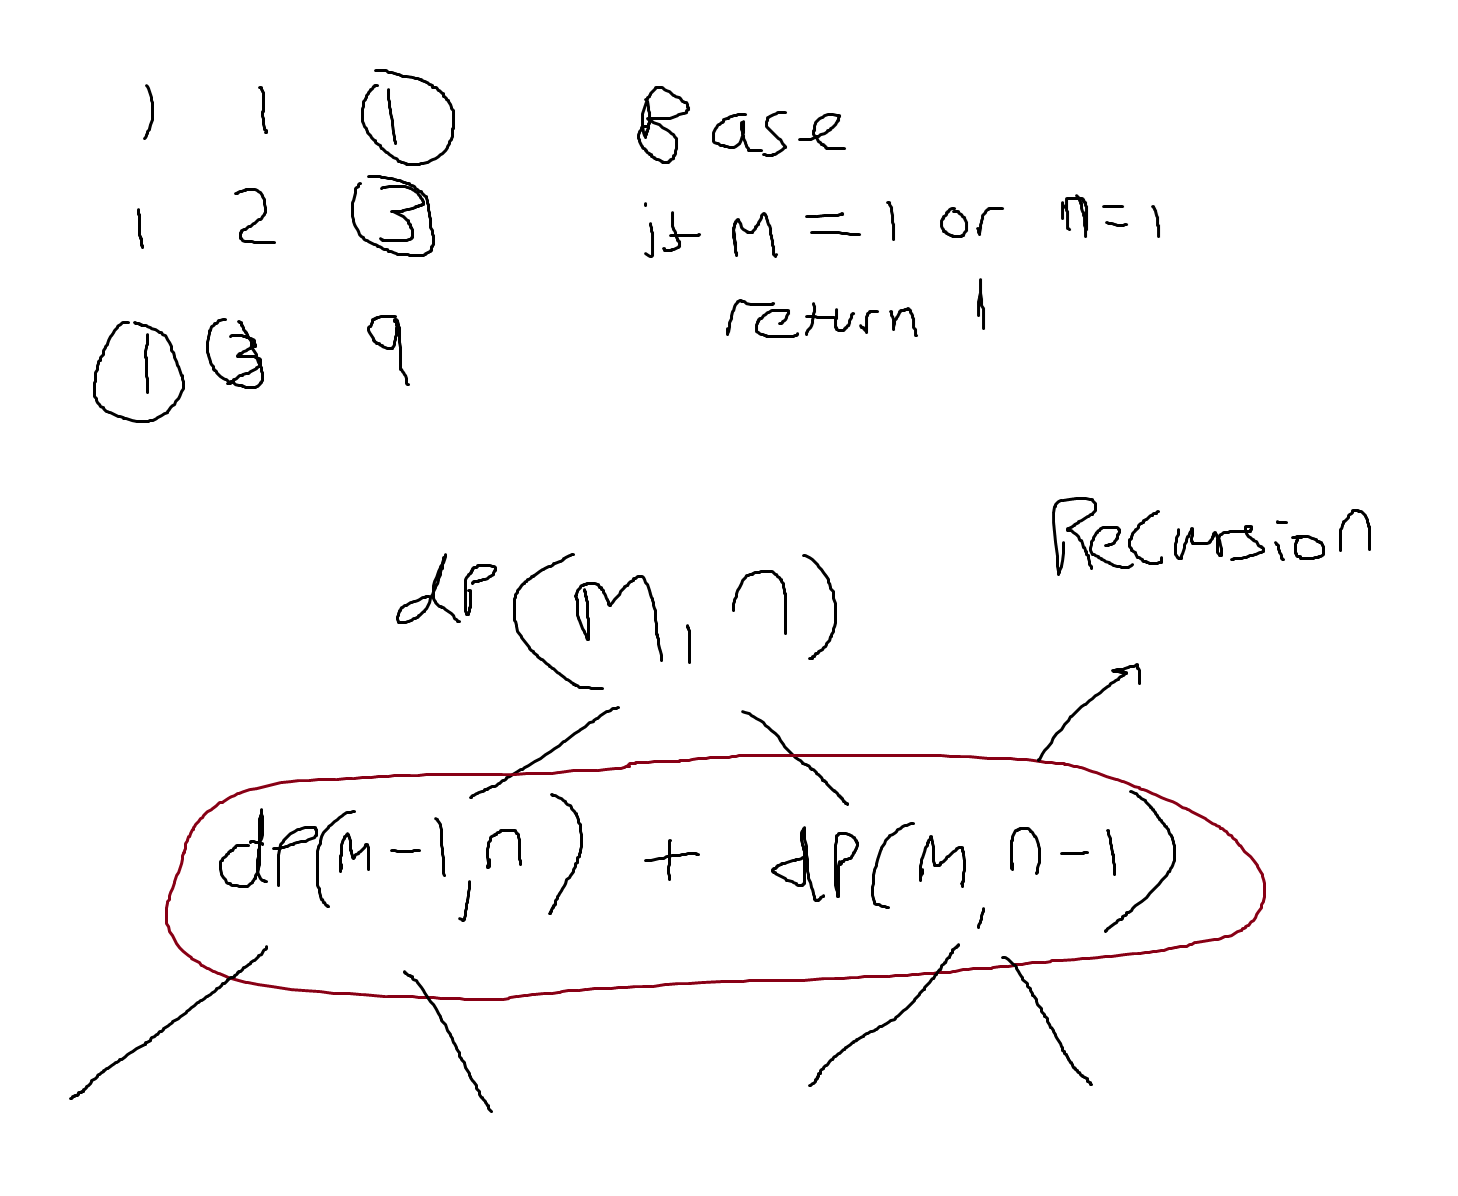 1 1 1
1 2 3
1 3 9
Base
if M = 1 or n = 1
return 1
Recursion
dP(M, n)
dP(M-1, n) + dP(M, n-1)